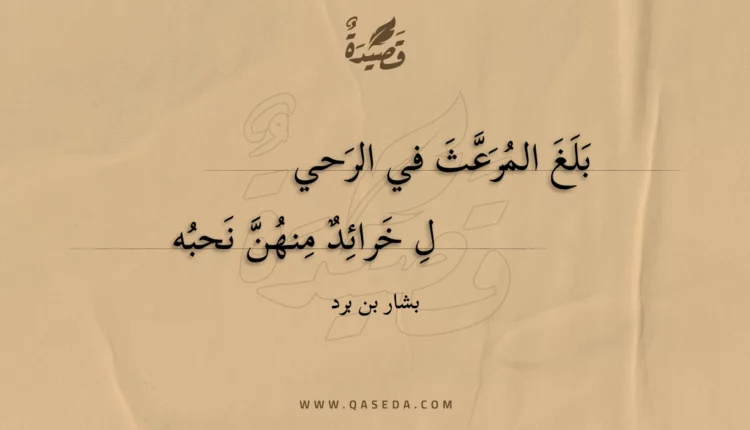 قَصِيدَةٌ
بَلَغَ المُرَعَّثَ في الرَحي
لِ خَرائِدٌ مِنهُنَّ نَحبُه
بشار بن برد
WWW.QASEDA.COM